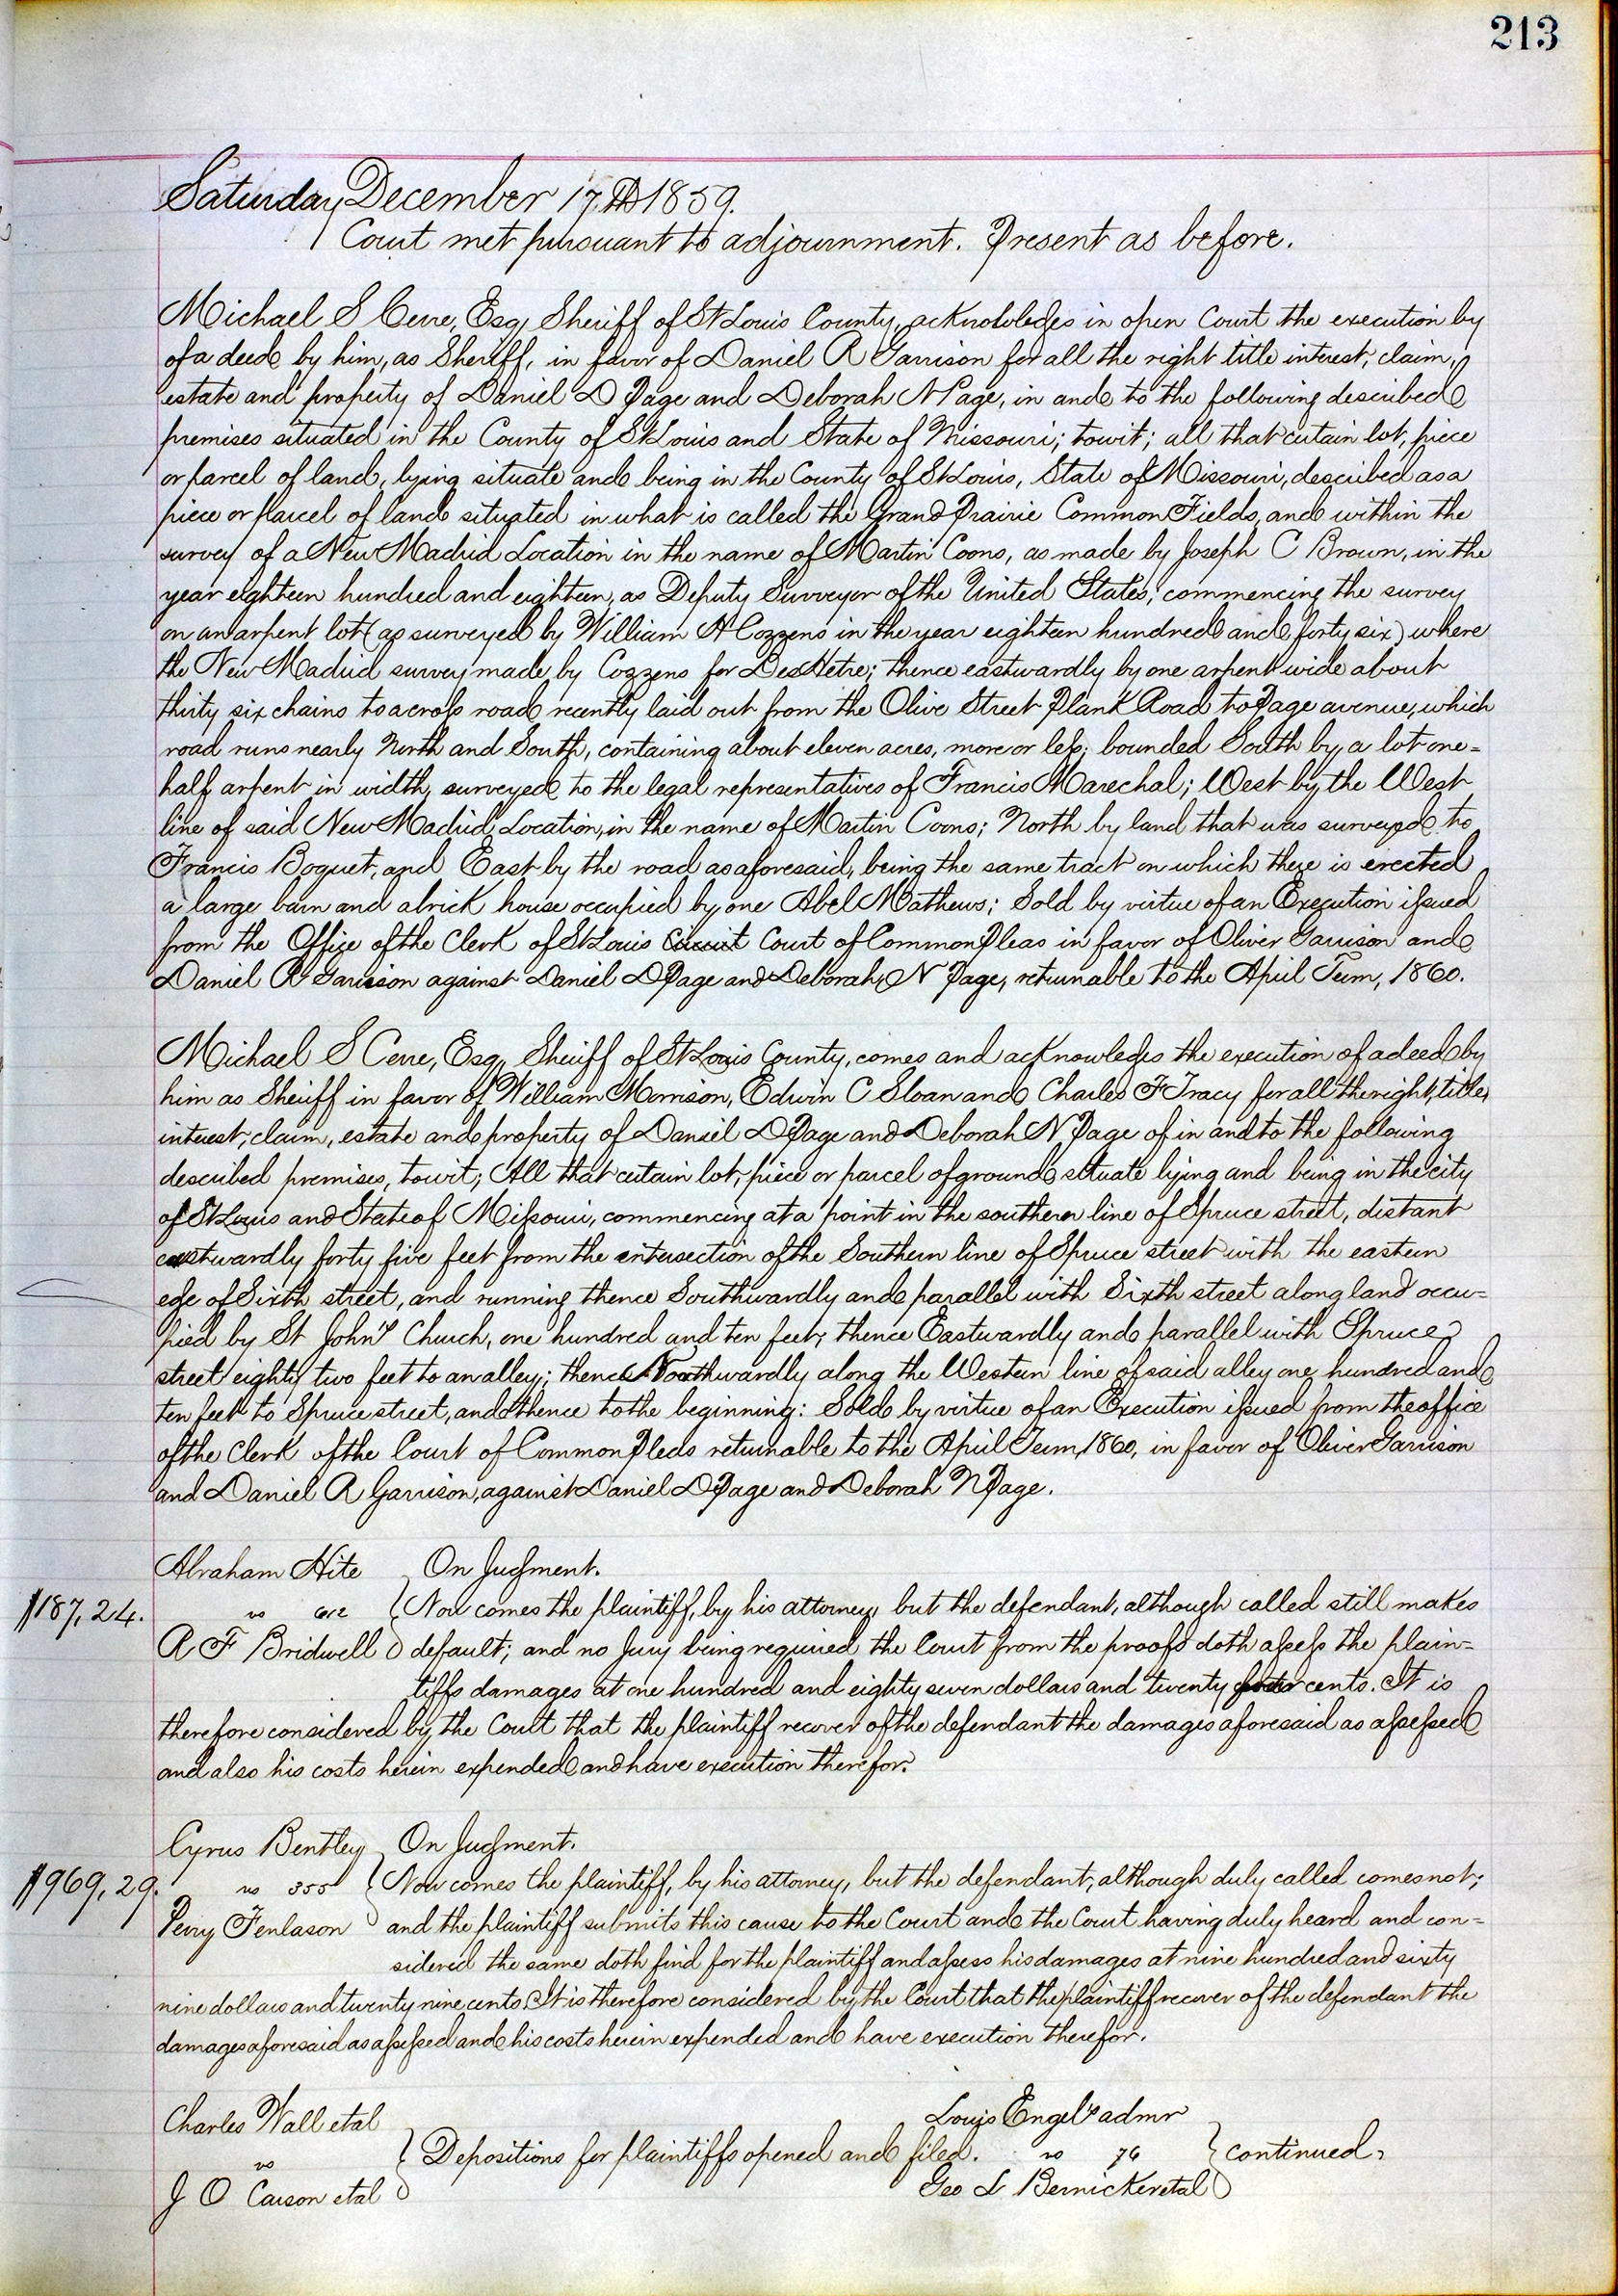 213
Saturday December 17th 1859.
Court met pursuant to adjournment. Present as before.
Michael S Cerre, Esq, Sheriff of St Louis County, acknowledges in open Court the execution by
of a deed by him, as Sheriff, in favor of Daniel R Garrison for all the right title interest, claim,
estate and property of Daniel D Page and Deborah N Page, in and to the following described
premises situated in the County of St Louis and State of Missouri; towit; all that certain lot, piece
or parcel of land, lying situate and being in the County of St Louis, State of Missouri, described as a
piece or parcel of land situated in what is called the Grand Prairie Common Fields, and within the
survey of a New Madrid Location in the name of Martin Coons, as made by Joseph C Brown, in the
year eighteen hundred and eighteen, as Deputy Surveyor of the United States; commencing the survey
on an arpent lot (as surveyed by William H Cozzens in the year eighteen hundred and forty six) where
the New Madrid survey made by Cozzens for DesHetre; thence eastwardly by one arpent wide about
thirty six chains to a cross road recently laid out from the Olive Street Plank Road to Page avenue, which
road runs nearly North and South, containing about eleven acres, more or less; bounded South by a lot one=
half arpent in width, surveyed to the legal representatives of Francis Marechal; West by the West
line of said New Madrid Location, in the name of Martin Coons; North by land that was surveyed to
Francis Boquet, and East by the road as aforesaid, being the same tract on which there is erected
a large barn and a brick house occupied by one Abel Mathews; Sold by virtue of an Execution issued
from the Office of the Clerk of St Louis Circuit Court of Common Pleas in favor of Oliver Garrison and
Daniel R Garrison against Daniel D Page and Deborah N Page, returnable to the April Term, 1860.
Michael S Cerre, Esq, Sheriff of St Louis County, comes and acknowledges the execution of a deed by
him as Sheriff in favor of William Morrison, Edwin C Sloan and Charles F Tracy for all the right, title,
interest, claim, estate and property of Daniel D Page and Deborah N Page of in and to the following
described premises, towit; All that certain lot, piece or parcel of ground situate lying and being in the city
of St Louis and State of Missouri, commencing at a point in the southern line of Spruce street, distant
eastwardly forty five feet from the intersection of the Southern line of Spruce street with the eastern
edge of Sixth street, and running thence Southwardly and parallel with Sixth street along land occu=
pied by St John's Church, one hundred and ten feet; thence Eastwardly and parallel with Spruce
street eighty two feet to an alley; thence Northwardly along the Western line of said alley one hundred and
ten feet to Spruce street, and thence to the beginning: Sold by virtue of an Execution issued from the office
of the Clerk of the Court of Common Pleas returnable to the April Term, 1860, in favor of Oliver Garrison
and Daniel R Garrison, against Daniel D Page and Deborah N Page.
Abraham Hite } On Judgment.
$187,24. vs 612 Now comes the plaintiff, by his attorney, but the defendant, although called still makes
R F Bridwell default; and no Jury being required the Court from the proofs doth assess the plain=
tiffs damages at one hundred and eighty seven dollars and twenty four cents. It is
therefore considered by the Court that the plaintiff recover of the defendant the damages aforesaid as assessed
and also his costs herein expended and have execution therefor.
Cyrus Bentley } On Judgment.
$969,29. vs 355 Now comes the plaintiff, by his attorney, but the defendant, although duly called comes not;
Perry Fenlason and the plaintiff submits this cause to the Court and the Court having duly heard and con=
sidered the same doth find for the plaintiff and assess his damages at nine hundred and sixty
nine dollars and twenty nine cents. It is therefore considered by the Court that the plaintiff recover of the defendant the
damages aforesaid as assessed and his costs herein expended and have execution therefor.
Charles Wall etal
vs } Depositions for plaintiffs opened and filed.
J O Carson etal
Louis Engel's admr
vs 76 } continued,
Geo L Bernicker etal